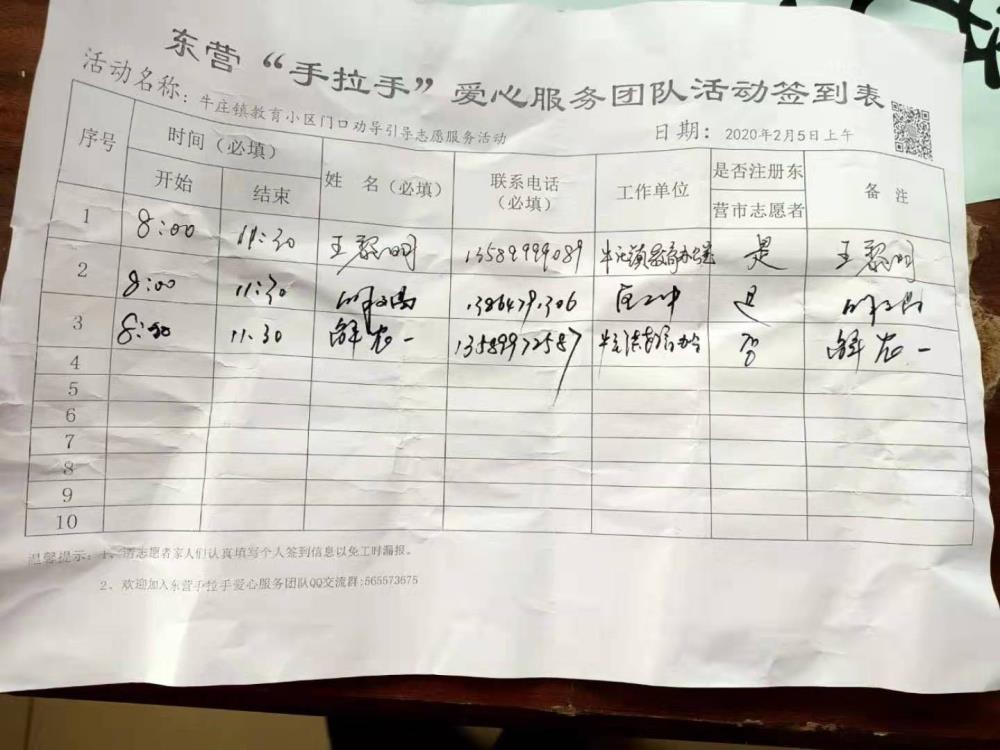 东营“手拉手”爱心服务团队活动签到表
活动名称：牛庄镇教育小区门口劝导引导志愿服务活动 日期：2020年2月5日上午
序号 时间（必填） 姓 名（必填） 联系电话（必填） 工作单位 是否注册东营市志愿者 备 注
开始 结束
1 8:00 11:30 王黎明 13589999089 牛庄镇教育办公室 是 王黎明
2 8:00 11:30 是
3 8:00 11:30 13589972587 否
4
5
6
7
8
9
10
温馨提示：1、请志愿者家人们认真填写个人签到信息以免工时漏报。
2、欢迎加入东营手拉手爱心服务团队QQ交流群:565573675